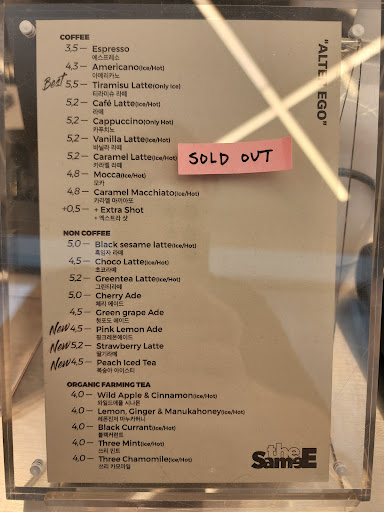 COFFEE
3,5 — Espresso
에스프레소
4,3 — Americano(Ice/Hot)
아메리카노
Best 5,5 — Tiramisu Latte(Only Ice)
티라미슈 라떼
5,2 — Café Latte(Ice/Hot)
라떼
5,2 — Cappuccino(Only Hot)
카푸치노
5,2 — Vanilla Latte(Ice/Hot)
바닐라 라떼
5,2 — Caramel Latte(Ice/Hot)
카라멜 라떼
4,8 — Mocca(Ice/Hot)
모카
4,8 — Caramel Macchiato(Ice/Hot)
카라멜 마끼아또
+0,5 — + Extra Shot
+ 엑스트라 샷
SOLD OUT
"ALTER EGO"
NON COFFEE
5,0 — Black sesame latte(Ice/Hot)
흑임자 라떼
4,5 — Choco Latte(Ice/Hot)
초코라떼
5,2 — Greentea Latte(Ice/Hot)
그린티라떼
5,0 — Cherry Ade
체리 에이드
4,5 — Green grape Ade
청포도 에이드
New 4,5 — Pink Lemon Ade
핑크레몬에이드
New 5,2 — Strawberry Latte
딸기라떼
New 4,5 — Peach Iced Tea
복숭아 아이스티
ORGANIC FARMING TEA
4,0 — Wild Apple & Cinnamon(Ice/Hot)
와일드애플 시나몬
4,0 — Lemon, Ginger & Manukahoney(Ice/Hot)
레몬진저 마누카허니
4,0 — Black Currant(Ice/Hot)
블랙커런트
4,0 — Three Mint(Ice/Hot)
쓰리 민트
4,0 — Three Chamomile(Ice/Hot)
쓰리 카모마일
the
SameE